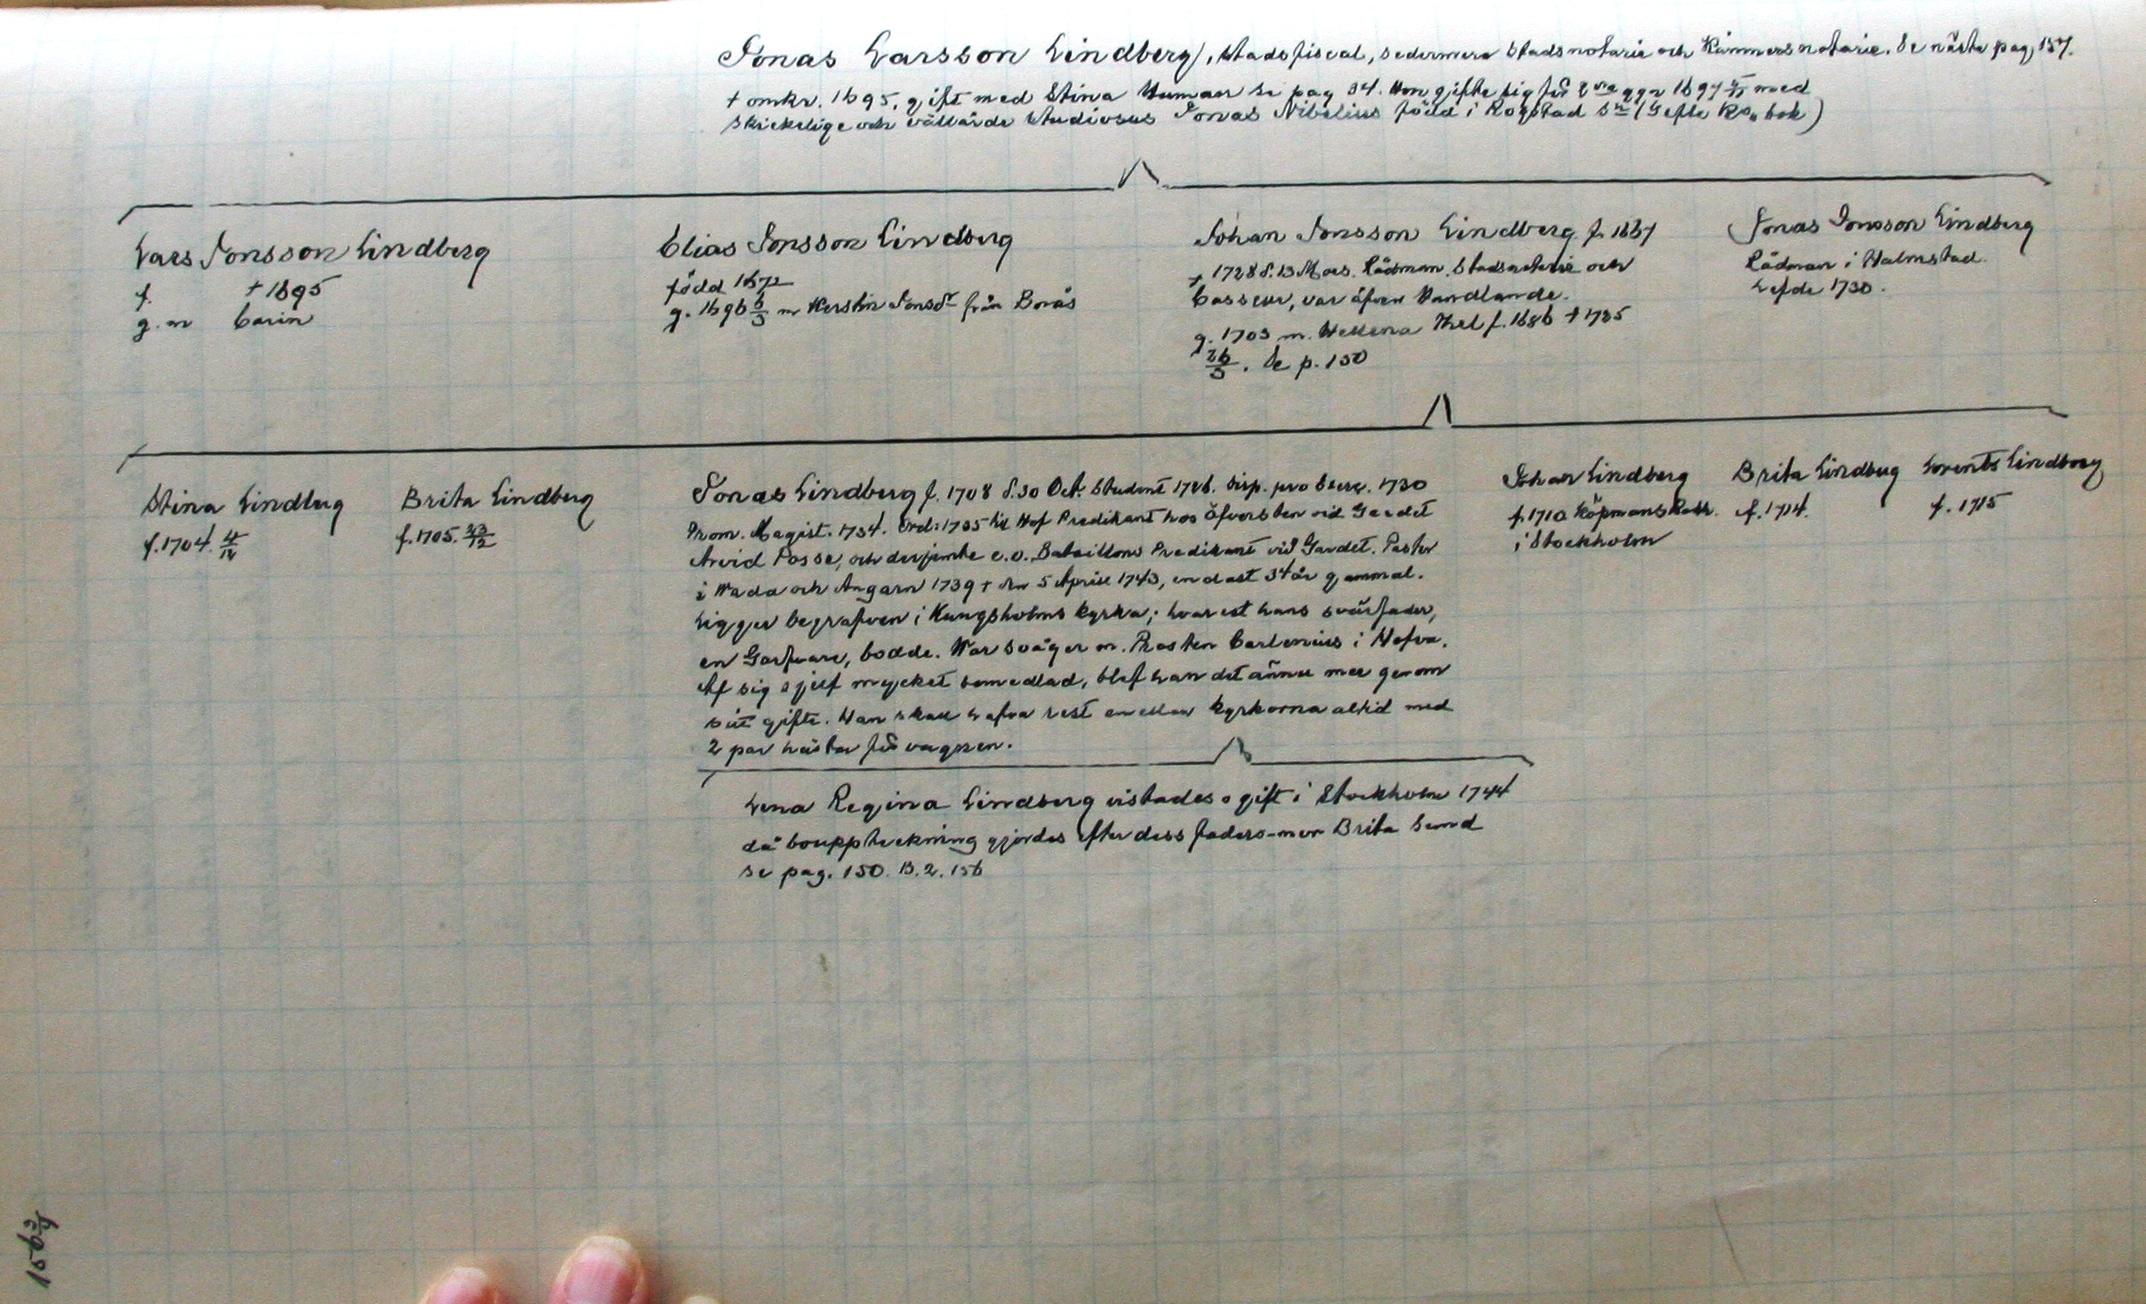 Jonas Larsson Lindberg, Stadsfiscal, sedermera Stadsnotarie och Kämnersnotarie. Se nästa pag, 157.
† omkr. 1695, gift med Stina Human se pag 34. Hon gifte sig för 2dra ggn 1697 med
skickelige och vällärde Studiosus Jonas Nibelius född i Rogstad Sn (Gefle Rd. bok)
Lars Jonsson Lindberg
f. † 1695
g. m Carin
Elias Jonsson Lindberg
född 1672
g. 1696 6/3 m Kerstin Jonsdr från Borås
Johan Jonsson Lindberg. f. 1667
† 1728 d. 13 Mars. Rådman, Stadsnotarie och
Casseur, var äfven Handlande.
g. 1703 m. Hellena Thel f. 1686 † 1735
26/3. Se p. 150
Jonas Jonsson Lindberg
Rådman i Halmstad.
Lefde 1730.
Stina Lindberg
f. 1704. 4/12
Brita Lindberg
f. 1705. 23/12
Jonas Lindberg f. 1708 d. 30 Oct. Student 1726. Disp. pro Exerc. 1730
Prom. Magist. 1734. Ord: 1735 till Hof Predikant hos Öfversten vid Gardet
Arvid Posse, och derjemte e.o. Bataillons Predikant vid Gardet. Pastor
i Wada och Angarn 1739 † den 5 April 1743, endast 34 år gammal.
Ligger begrafven i Kungsholms kyrka; hvarest hans svärfader,
en Garfvare, bodde. War svåger m. Prosten Carlenius i Hafva.
Af sig sjelf mycket bemedlad, blef han det ännu mer genom
sitt gifte. Han skall hafva rest emellan kyrkorna altid med
2 par hästar för vagnen.
Johan Lindberg
f. 1710 Köpmans
i Stockholm
Brita Lindberg
f. 1714.
Lorents Lindberg
f. 1715
Lena Regina Lindberg vistades ogift i Stockholm 1744
då bouppteckning gjordes efter dess faders-mor Brita Sund
se pag. 150. B. 2. 156
156 3/4